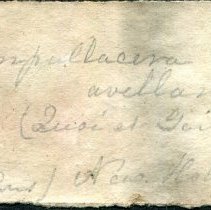 mpullacera
avellan
(Quoi et Gai
) New Hol